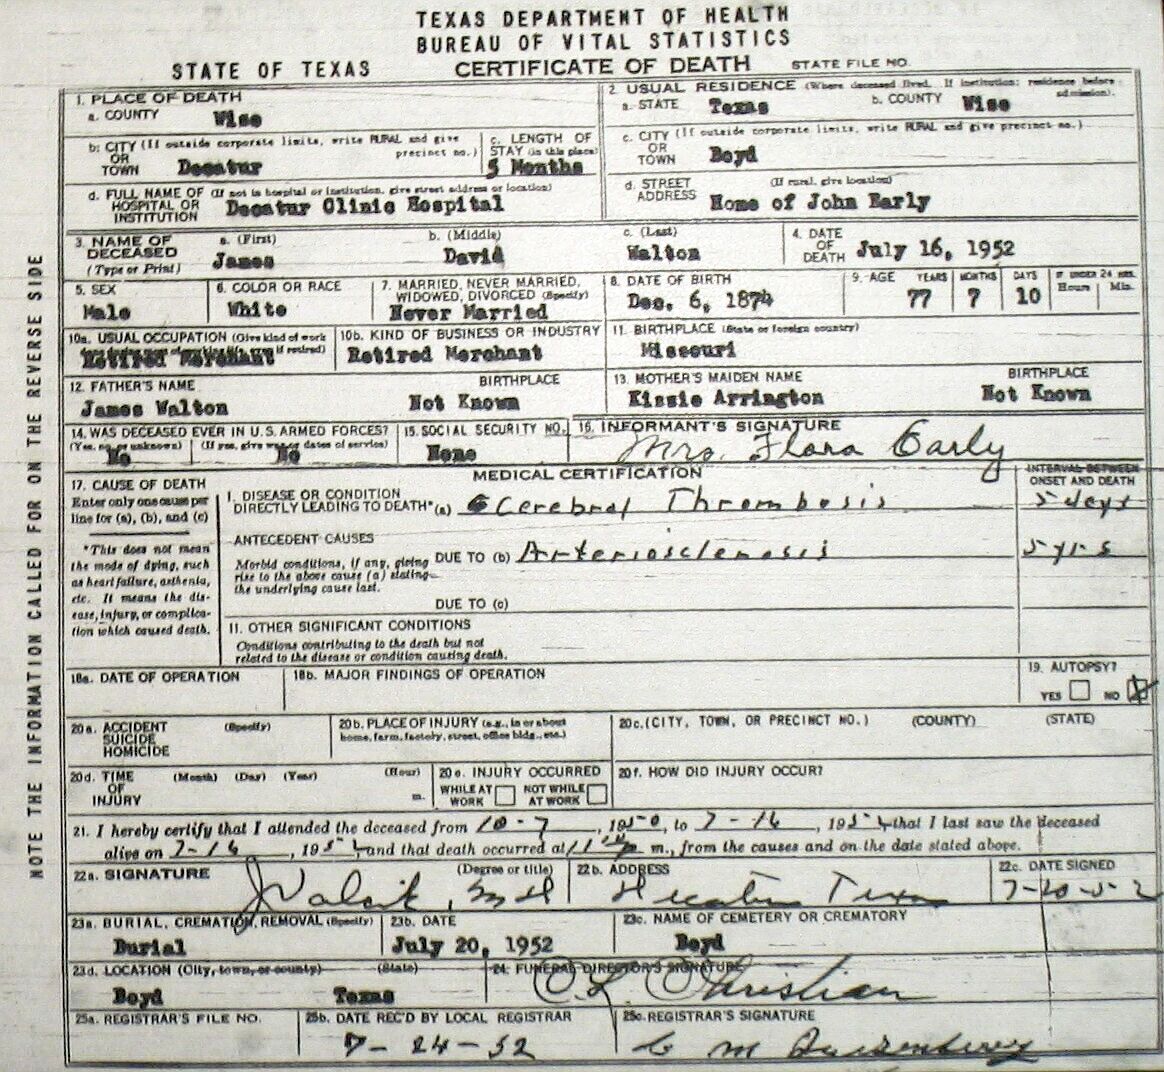 TEXAS DEPARTMENT OF HEALTH
BUREAU OF VITAL STATISTICS
STATE OF TEXAS CERTIFICATE OF DEATH STATE FILE NO.
NOTE THE INFORMATION CALLED FOR ON THE REVERSE SIDE
1. PLACE OF DEATH
a. COUNTY Wise
2. USUAL RESIDENCE (Where deceased lived. If institution: residence before admission).
a. STATE Texas b. COUNTY Wise
b. CITY (If outside corporate limits, write RURAL and give precinct no.)
OR
TOWN Decatur
c. LENGTH OF STAY (in this place)
5 Months
c. CITY (If outside corporate limits, write RURAL and give precinct no.)
OR
TOWN Boyd
d. FULL NAME OF (If not in hospital or institution, give street address or location)
HOSPITAL OR
INSTITUTION Decatur Clinic Hospital
d. STREET ADDRESS (If rural, give location)
Home of John Early
3. NAME OF DECEASED (Type or Print)
a. (First) James
b. (Middle) David
c. (Last) Walton
4. DATE OF DEATH July 16, 1952
5. SEX
Male
6. COLOR OR RACE
White
7. MARRIED, NEVER MARRIED, WIDOWED, DIVORCED (Specify)
Never Married
8. DATE OF BIRTH
Dec. 6, 1874
9. AGE YEARS MONTHS DAYS IF UNDER 24 HRS. Hours Min.
77 7 10
10a. USUAL OCCUPATION (Give kind of work if retired)
Retired Merchant
10b. KIND OF BUSINESS OR INDUSTRY
Retired Merchant
11. BIRTHPLACE (State or foreign country)
Missouri
12. FATHER'S NAME BIRTHPLACE
James Walton Not Known
13. MOTHER'S MAIDEN NAME BIRTHPLACE
Kissie Arrington Not Known
14. WAS DECEASED EVER IN U.S. ARMED FORCES?
(Yes, no, or unknown) (If yes, give war or dates of service)
No No
15. SOCIAL SECURITY NO.
None
16. INFORMANT'S SIGNATURE
Mrs. Flora Early
MEDICAL CERTIFICATION
INTERVAL BETWEEN ONSET AND DEATH
17. CAUSE OF DEATH
Enter only one cause per line for (a), (b), and (c)
*This does not mean the mode of dying, such as heart failure, asthenia, etc. It means the disease, injury, or complication which caused death.
I. DISEASE OR CONDITION
DIRECTLY LEADING TO DEATH* (a) Cerebral Thrombosis 5 days
ANTECEDENT CAUSES
Morbid conditions, if any, giving rise to the above cause (a) stating the underlying cause last.
DUE TO (b) Arteriosclerosis 5 yrs
DUE TO (c)
II. OTHER SIGNIFICANT CONDITIONS
Conditions contributing to the death but not related to the disease or condition causing death.
18a. DATE OF OPERATION
18b. MAJOR FINDINGS OF OPERATION
19. AUTOPSY?
YES NO X
20a. ACCIDENT (Specify)
SUICIDE
HOMICIDE
20b. PLACE OF INJURY (e.g., in or about home, farm, factory, street, office bldg., etc.)
20c. (CITY, TOWN, OR PRECINCT NO.) (COUNTY) (STATE)
20d. TIME OF INJURY (Month) (Day) (Year) (Hour) m.
20e. INJURY OCCURRED
WHILE AT WORK NOT WHILE AT WORK
20f. HOW DID INJURY OCCUR?
21. I hereby certify that I attended the deceased from 10-7, 1950, to 7-16, 1952, that I last saw the deceased
alive on 7-16, 1952, and that death occurred at m., from the causes and on the date stated above.
22a. SIGNATURE (Degree or title)
22b. ADDRESS
Decatur Texas
22c. DATE SIGNED
7-20-52
23a. BURIAL, CREMATION, REMOVAL (Specify)
Burial
23b. DATE
July 20, 1952
23c. NAME OF CEMETERY OR CREMATORY
Boyd
23d. LOCATION (City, town, or county) (State)
Boyd Texas
24. FUNERAL DIRECTOR'S SIGNATURE
Christian
25a. REGISTRAR'S FILE NO.
25b. DATE REC'D BY LOCAL REGISTRAR
7-24-52
25c. REGISTRAR'S SIGNATURE